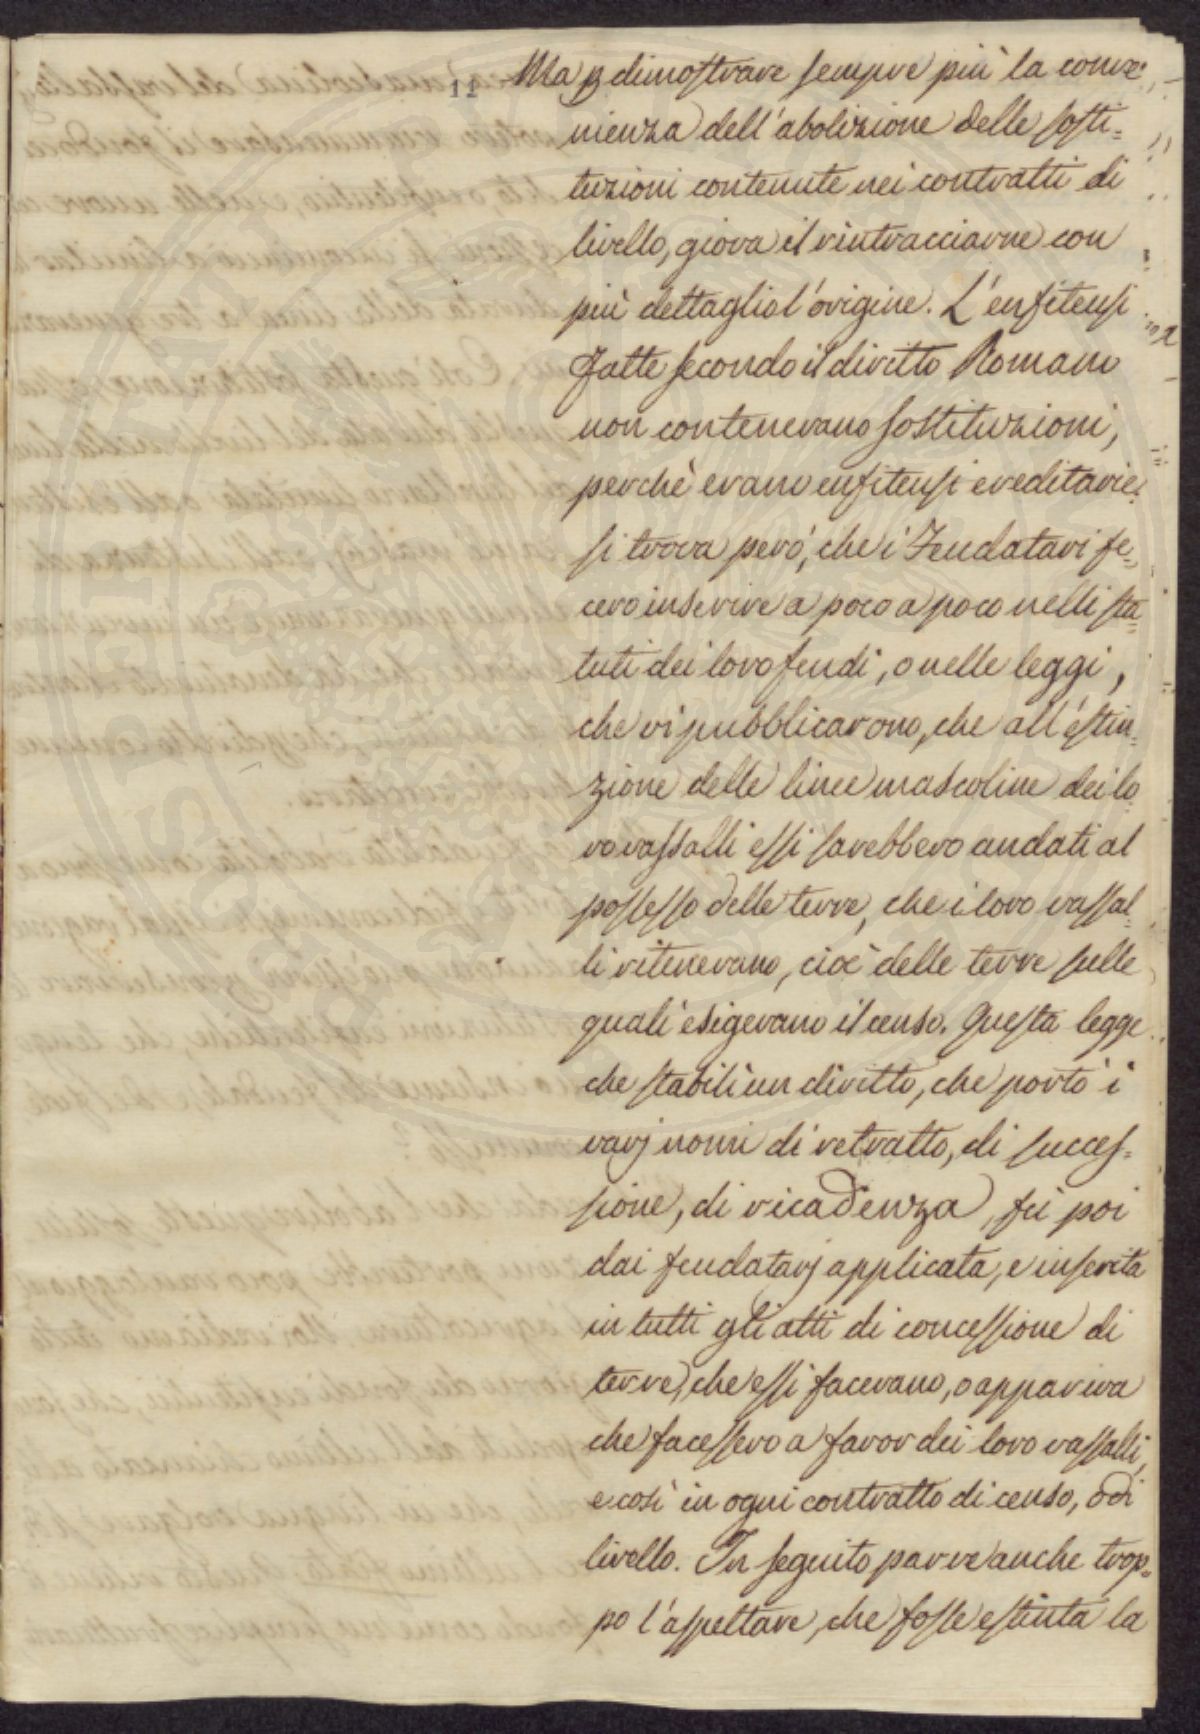 11 Ma p dimostrare sempre più la conve=
nienza dell'abolizione delle sosti=
tuzioni contenute nei contratti di
livello, giova il rintracciarne con
più dettaglio l'origine. L'enfiteusi
fatte secondo il diritto Romano
non contenevano sostituzioni,
perchè erano enfiteusi ereditarie.
si trova però, che i Feudatari fe=
cero inserire a poco a poco nelli sta=
tuti dei loro feudi, o nelle leggi,
che vi pubblicarono, che all'estin=
zione delle linee mascoline dei lo
ro vassalli essi sarebbero andati al
possesso delle terre, che i loro vassal=
li ritenevano, cioè delle terre sulle
quali esigevano il censo. Questa legge
che stabilì un diritto, che portò i
varj nomi di retratto, di succes=
sione, di ricadenza, fù poi
dai feudatarj applicata, e inserita
in tutti gli atti di concessione di
terre, che essi facevano, o appariva
che facessero a favor dei loro vassalli,
e così in ogni contratto di censo, o di
livello. In seguito parve anche trop=
po l'aspettare, che fosse estinta la